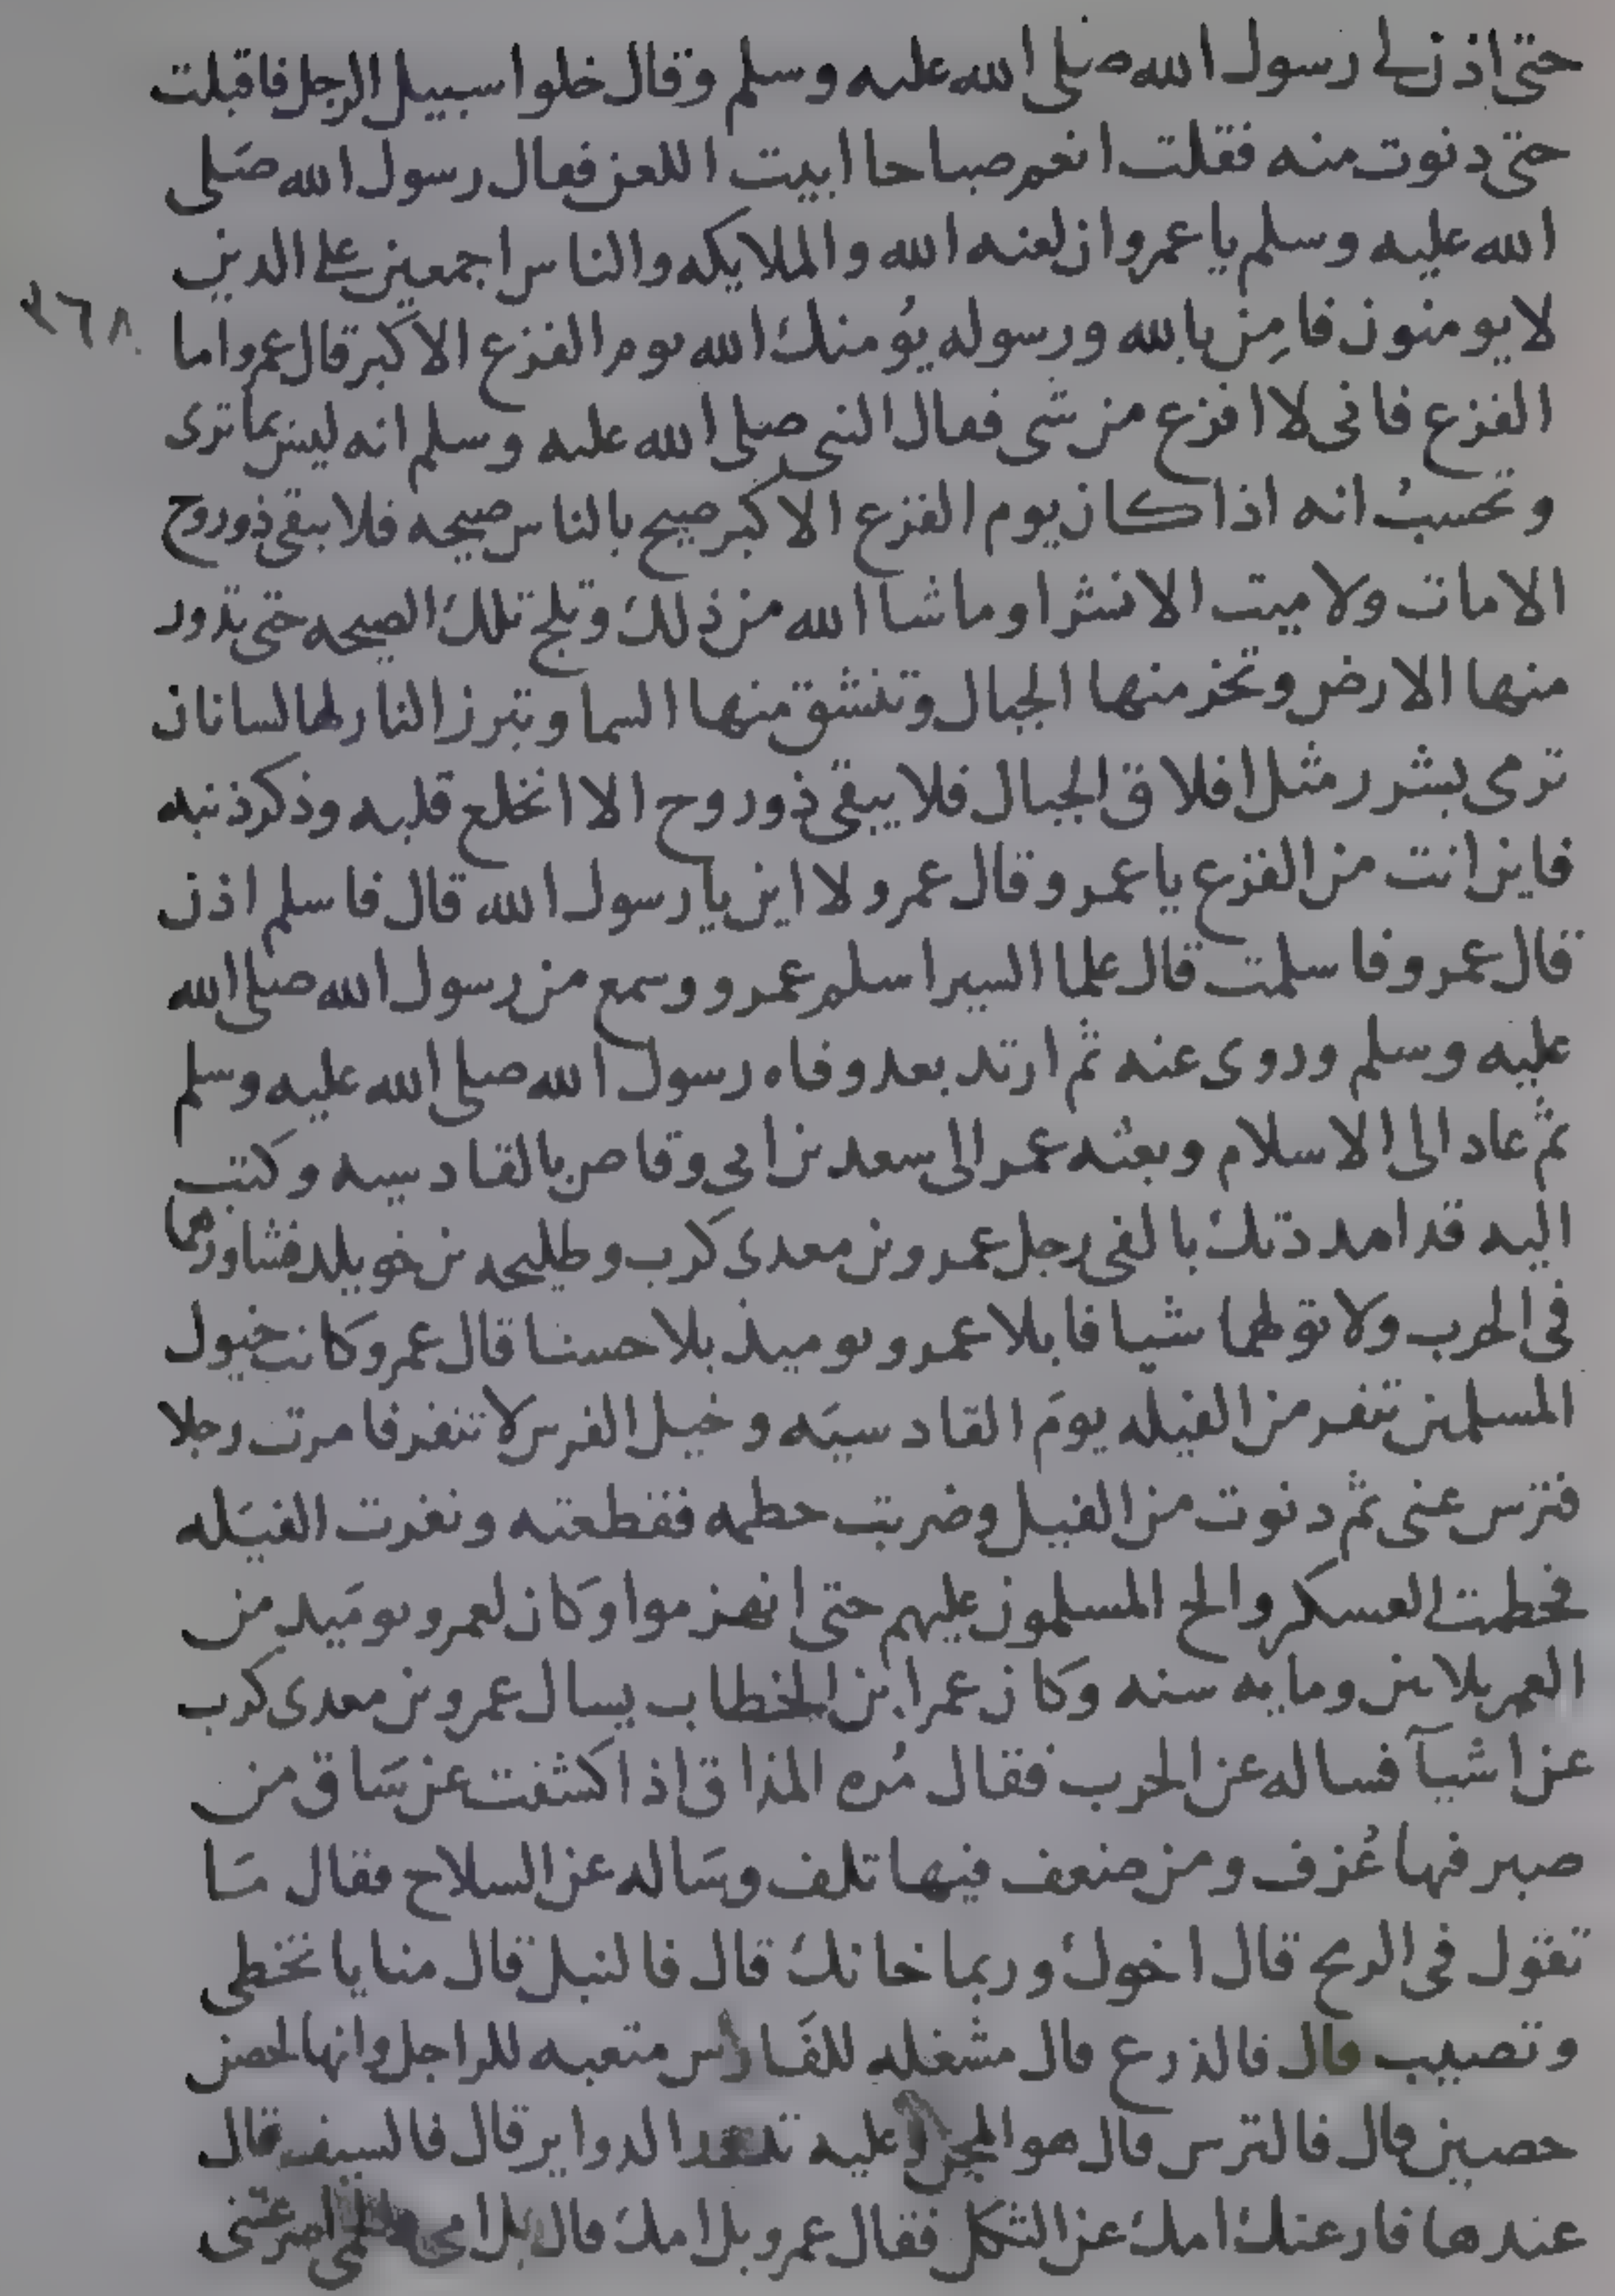 حتى اذن لى رسول الله صلى الله عليه وسلم وقال خلوا سبيل الرجل فاقبلت
حتى دنوت منه فقلت انعم صباحا ابيت اللعن فقال رسول الله صلى
الله عليه وسلم يا عمرو ان لعنه الله والملايكه والناس اجمعين على الذين
٣٦٨
لا يومنون فامِن بالله ورسوله يؤمنك الله يوم الفزع الاكبر قال عمرو اما
الفزع فانى لا افزع من شى فقال النبى صلى الله عليه وسلم انه ليس بما ترى
وتحسبُ انه اذا كان يوم الفزع الاكبر صيح بالناس صيحه فلا يبقى ذو روح
الا مات ولا ميت الا نشر او ما شا الله من ذلك وتلج تلك الصيحه حتى تدور
منها الارض وتخر منها الجبال وتنشق منها السما وتبرز النار لها لسانان
ترمى بشرر مثل افلاق الجبال فلا يبقى ذو روح الا انخلع قلبه وذكر ذنبه
فاين انت من الفزع يا عمرو قال عمرو لا اين يا رسول الله قال فاسلم اذن
قال عمرو فاسلمت قال علما السير اسلم عمرو وسمع من رسول الله صلى الله
عليه وسلم وروى عنه ثم ارتد بعد وفاه رسول الله صلى الله عليه وسلم
ثم عاد الى الاسلام وبعثه عمر الى سعد بن ابي وقاص بالقادسيه وكتب
اليه قد امددتك بالفى رجل عمرو بن معدى كرب وطليحه بن خويلد فشاورهما
فى الحرب ولا تولهما شيا فابلا عمرو يوميذ بلا حسنا قال عمرو وكانت خيول
المسلمين تنفر من الفيله يومَ القادسيَه وخيل الفرس لا تنفر فامرت رجلا
فترس عنى ثم دنوت من الفيل وضربت خطمه فقطعته ونفرت الفيَله
فحطمت العسكر والح المسلمون عليهم حتى انهزموا وكان لعمرو يوميَذ من
العمر ثلاثين ومايه سنه وكان عمر ابن الخطاب يسال عمرو بن معدى كرب
عن اشيآ فساله عن الحرب فقال مُره المذاق اذا كشفت عن سَاق من
صبر فيها عُرف ومن ضعف فيها تلف وسَاله عن السلاح فقال مَا
تقول فى الرمح قال اخوك وربما خانك قال فالنبل قال منايا تخطى
وتصيب قال فالدرع قال مشغله للفَارس متعبه للراجل وانها لحصن
حصين قال فالترس قال هو المجن وعليه الدواير قال فالسيف قال
عندها قارعتك امك عن الثكل فقال عمر بل امك قال بل امى